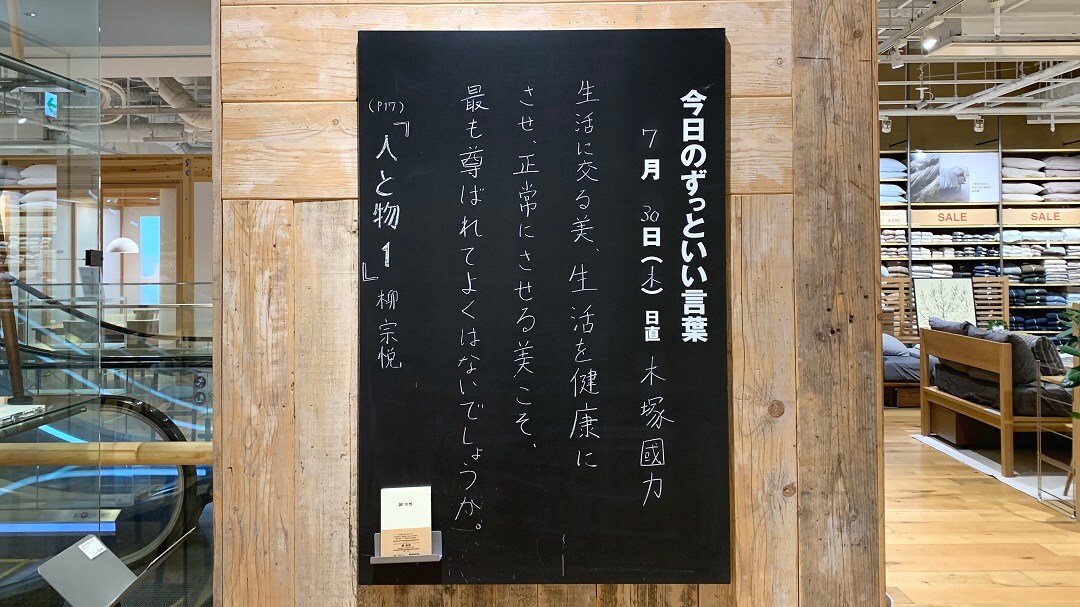 今日のずっといい言葉
7月30日(木)日直 木塚國力
生活に交る美、生活を健康に
させ、正常にさせる美こそ、
最も尊ばれてよくはないでしょうか。
(P17)『人と物1』柳宗悦
柳 宗悦
SALE
SALE